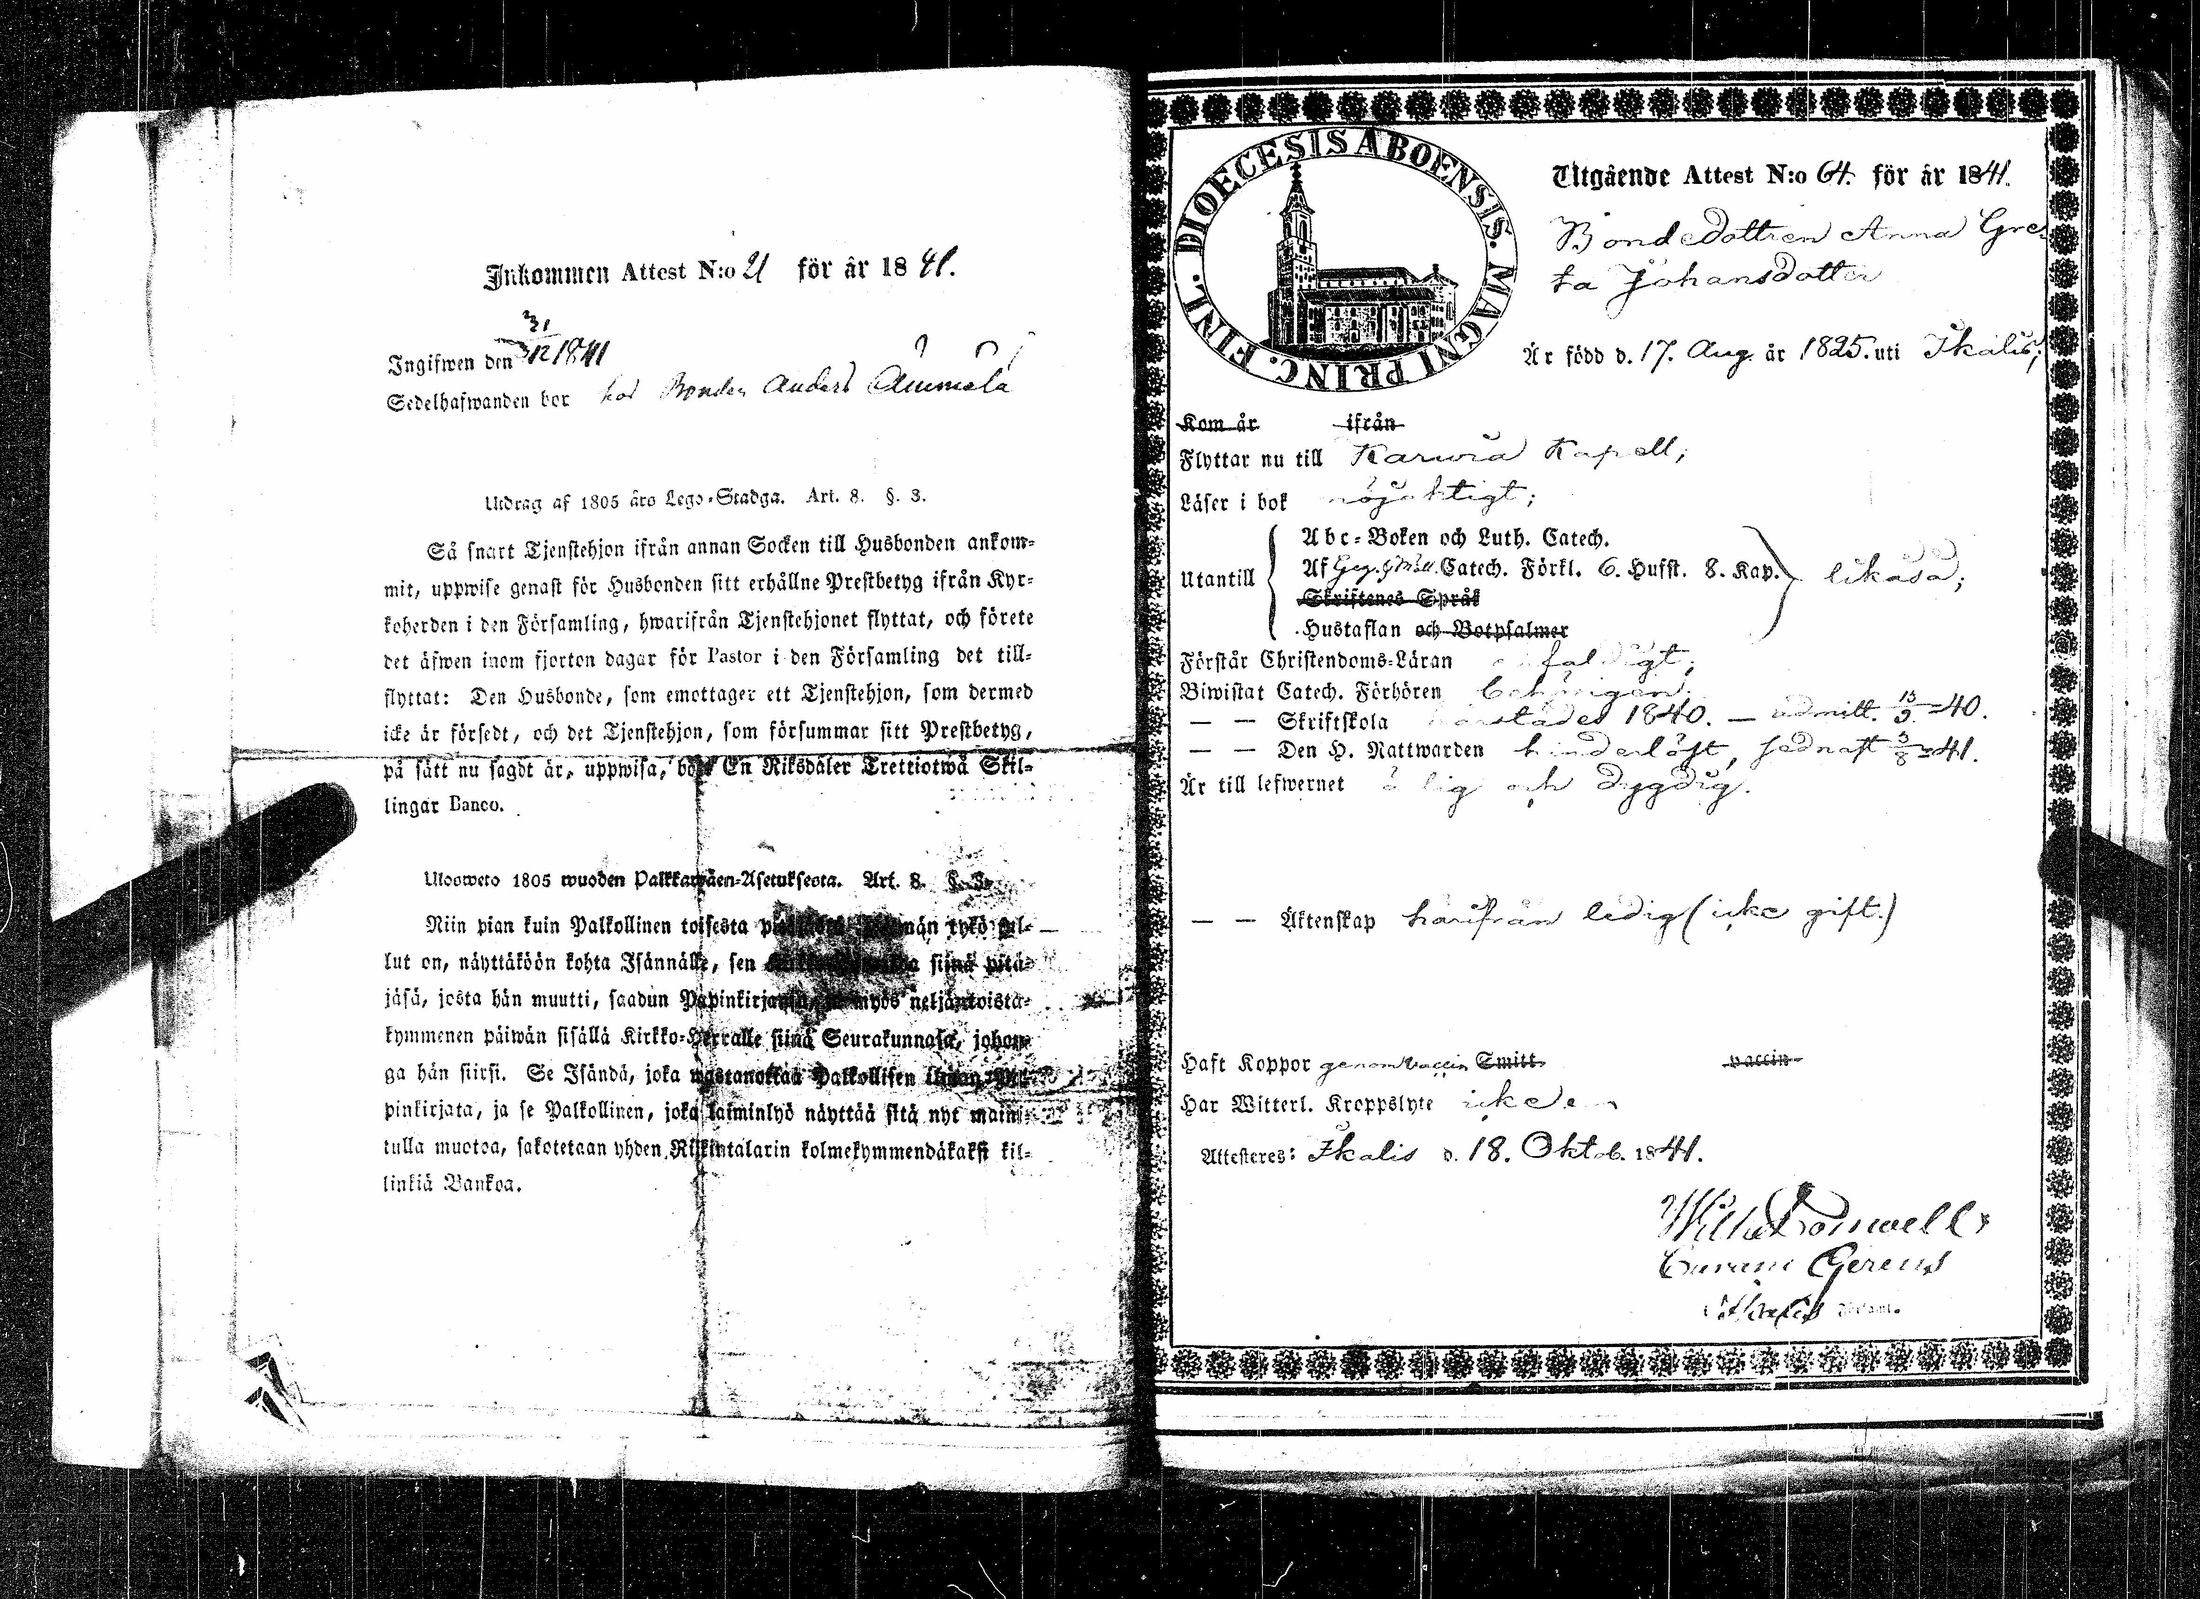 Inkommen Attest N:o 21 för år 1841.
Ingifwen den 31/12 1841
Sedelhafwanden bor hos Bonden Anders Ämmälä
Utdrag af 1805 års Lego-Stadga. Art. 8. §. 3.
Så snart Tjenstehjon ifrån annan Socken till Husbonden ankom-
mit, uppwise genast för Husbonden sitt erhållne Prestbetyg ifrån Kyr-
koherden i den Församling, hwarifrån Tjenstehjonet flyttat, och förete
det äfwen inom fjorton dagar för Pastor i den Församling det till-
flyttat: Den Husbonde, som emottager ett Tjenstehjon, som dermed
icke är försedt, och det Tjenstehjon, som försummar sitt Prestbetyg,
på sätt nu sagdt är, uppwisa, En Riksdaler Trettiotwå Skil-
lingar Banco.
Uloosweto 1805 wuoden Palkkawäen-Asetuksesta. Art. 8. §. 3.
Niin pian kuin Palkollinen toisesta tykö tul-
lut on, näyttäköön kohta Isännälle, sen siinä pitä-
jäsä, josta hän muutti, saadun Papinkirjansa, myös neljäntoista-
kymmenen päiwän sisällä Kirkko-Herralle siinä Seurakunnasa, johon-
ga hän siirsi. Se Isändä, joka wastanottaa Palkollisen ilman Pa-
pinkirjata, ja se Palkollinen, joka laiminlyö näyttää sitä nyt maini-
tulla muotoa, sakotetaan yhden Riikintalarin kolmekymmendäkaksi kil-
linkiä Bankoa.
DIOECESIS ABOENSIS. MAGNI PRINC. FINL.
Utgående Attest N:o 64. för år 1841.
Bondedottren Anna Gre-
ta Johansdotter
Är född d. 17. Aug. år 1825. uti Ikalis;
Kom år ifrån
Flyttar nu till Karvia Kapell;
Läser i bok nöjaktigt;
Abc-Boken och Luth. Catech.
Utantill Af Catech. Förkl. 6. Hufst. 8. Kap. likaså;
Skriftenes Språk
Hustaflan och Botpsalmer
Förstår Christendoms-Läran enfaldigt;
Biwistat Catech. Förhören behörigen.
— — Skriftskola härstädes 1840. — admitt. 13/9 40.
— — Den H. Nattwarden hinderlöst, sednast 3/8 41.
Är till lefwernet ärlig och dygdig.
— — Äktenskap härifrån ledig (icke gift.)
Haft Koppor genom vaccin Smitt vaccin
Har Witterl. Kroppslyte icke
Attesteres: Ikalis d. 18. Oktob. 1841.
Curam Gerens